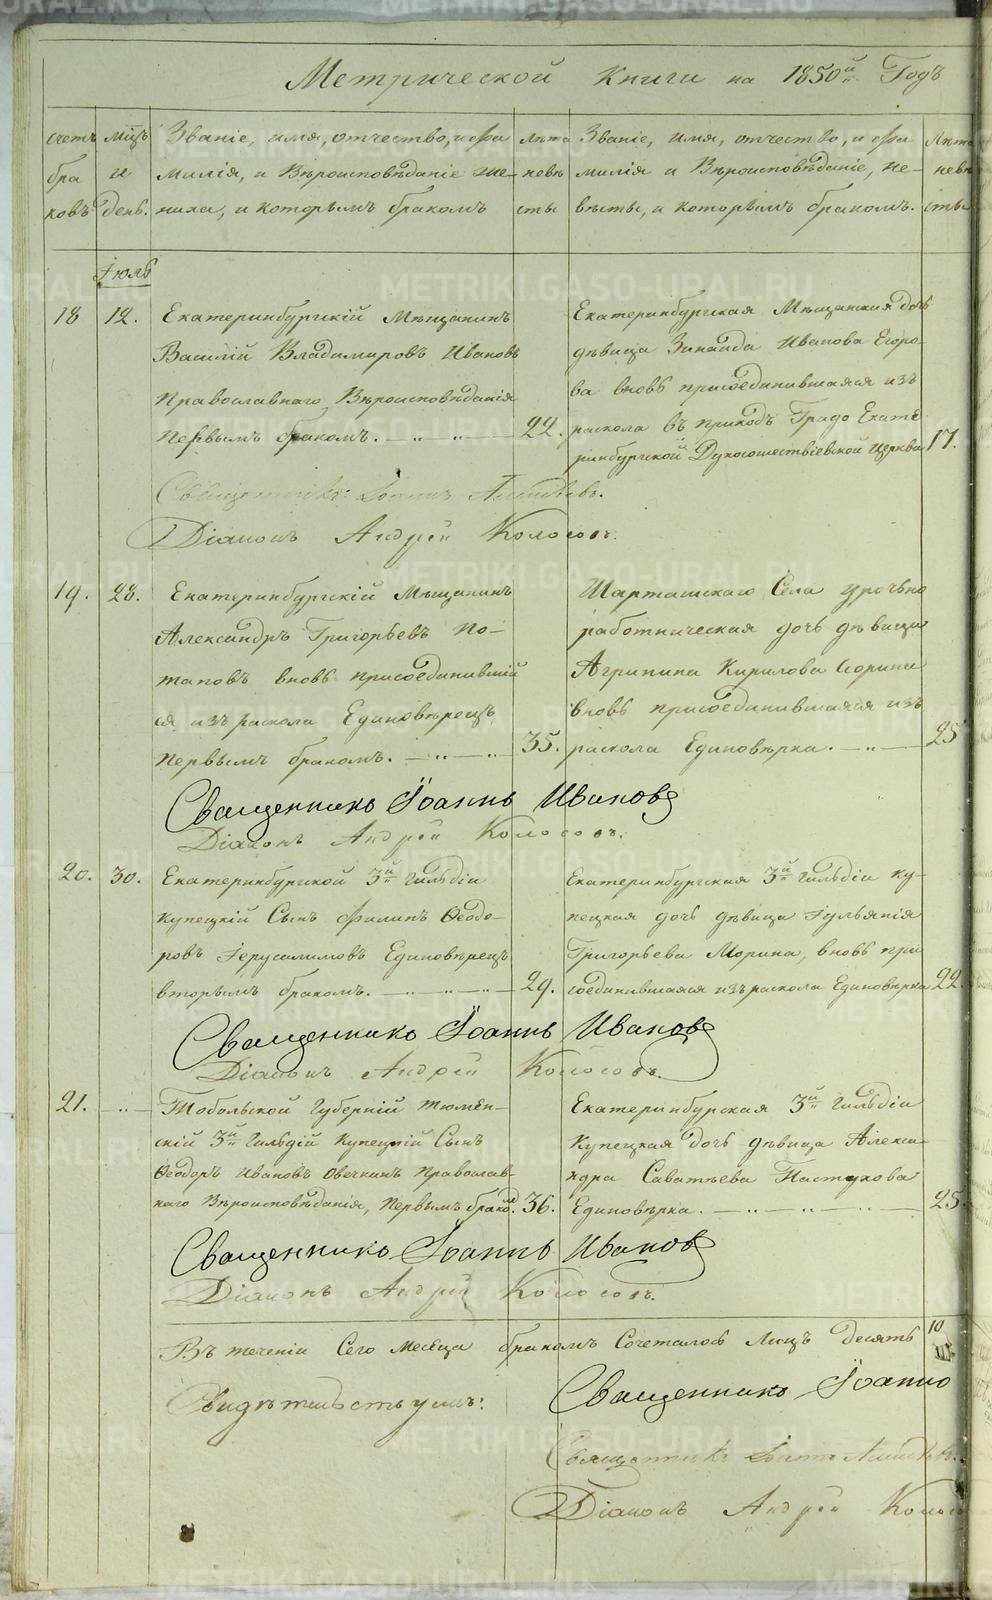 Метрической Книги на 1850й Годъ
счетъ браковъ
мцъ и день.
Званіе, имя, отчество, и фамилія, и Вѣроисповѣданіе жениха, и которымъ бракомъ
Лѣта
Званіе, имя, отчество, и фамилія и Вѣроисповѣданіе, невѣсты, и которымъ бракомъ.
Лѣта невѣсты
Іюль
18 12. Екатеринбургскій Мѣщанинъ
Василій Владимировъ Ивановъ
Православнаго Вѣроисповѣданія
Первымъ бракомъ. 22.
Екатеринбургская Мѣщанская дочь
дѣвица Зинаида Иванова Егоро-
ва вновь присоединившаяся изъ
раскола въ приходъ Градо Екате
ринбургской Духосошествіевской Церкви 17.
Священникъ Іоаннъ
Діаконъ Андрей Колосовъ.
19. 28. Екатеринбургскій Мѣщанинъ
Александръ Григорьевъ По-
таповъ вновь присоединившій
ся изъ раскола Единовѣрецъ
Первымъ бракомъ. 35.
Шарташскаго Села урочно
работническая дочь дѣвица
Агрипина Кирилова
вновь присоединившаяся изъ
раскола Единовѣрка. 25
Священникъ Іоаннъ Ивановъ
Діаконъ Андрей Колосовъ.
20. 30. Екатеринбургской 3й Гильдіи
купецкій Сынъ Филипъ Ѳеодо-
ровъ Іерусалимовъ Единовѣрецъ
вторымъ бракомъ. 29.
Екатеринбургская 3й Гильдіи ку-
пецкая дочь дѣвица Іульянія
Григорьева Морина, вновь при
соединившаяся изъ раскола Единовѣрка 22.
Священникъ Іоаннъ Ивановъ
Діаконъ Андрей Колосовъ.
21. Тобольской Губерніи Тюмен-
скій 3й Гильдій Купецкій Сынъ
Ѳеодоръ Ивановъ Овечкинъ Православ-
наго Вѣроисповѣданія, Первымъ браком. 36.
Екатеринбурская 3й Гильдіи
Купецкая дочь дѣвица Алекса-
ндра Саватѣева Пастухова
Единовѣрка. 25.
Священникъ Іоаннъ Ивановъ
Діаконъ Андрей Колосовъ.
Въ теченіи Сего Месяца бракомъ Сочеталось Лицъ десять 10
Свидѣтельствуемъ:
Священникъ Іоаннъ
Священникъ Іоаннъ
Діаконъ Андрей Колосо
METRIKI.GASO-URAL.RU